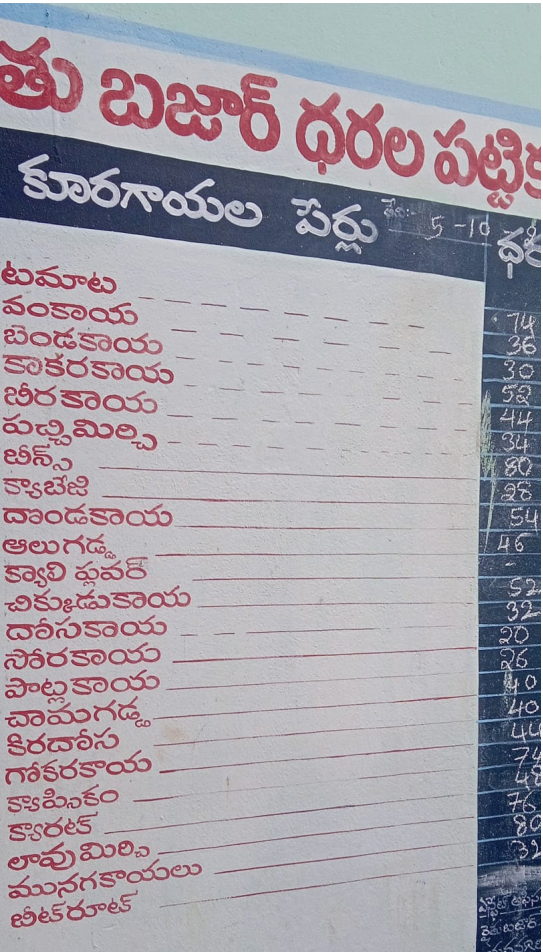 తు బజార్ ధరల పట్టిక
కూరగాయల పేర్లు తేది:- 5-10 ధర
టమాట 74
వంకాయ 36
బెండకాయ 30
కాకరకాయ 52
బీరకాయ 44
పచ్చిమిర్చి 34
బీన్స్ 80
క్యాబేజి 28
దొండకాయ 54
ఆలుగడ్డ 46
క్యాలిఫ్లవర్ -
చిక్కుడుకాయ 52
దోసకాయ 32
సోరకాయ 20
పొట్లకాయ 26
చామగడ్డ 40
కీరదోస 40
గోకరకాయ 44
క్యాప్సికం 74
క్యారట్ 48
లావుమిర్చి 76
మునగకాయలు 80
బీట్‌రూట్ 32